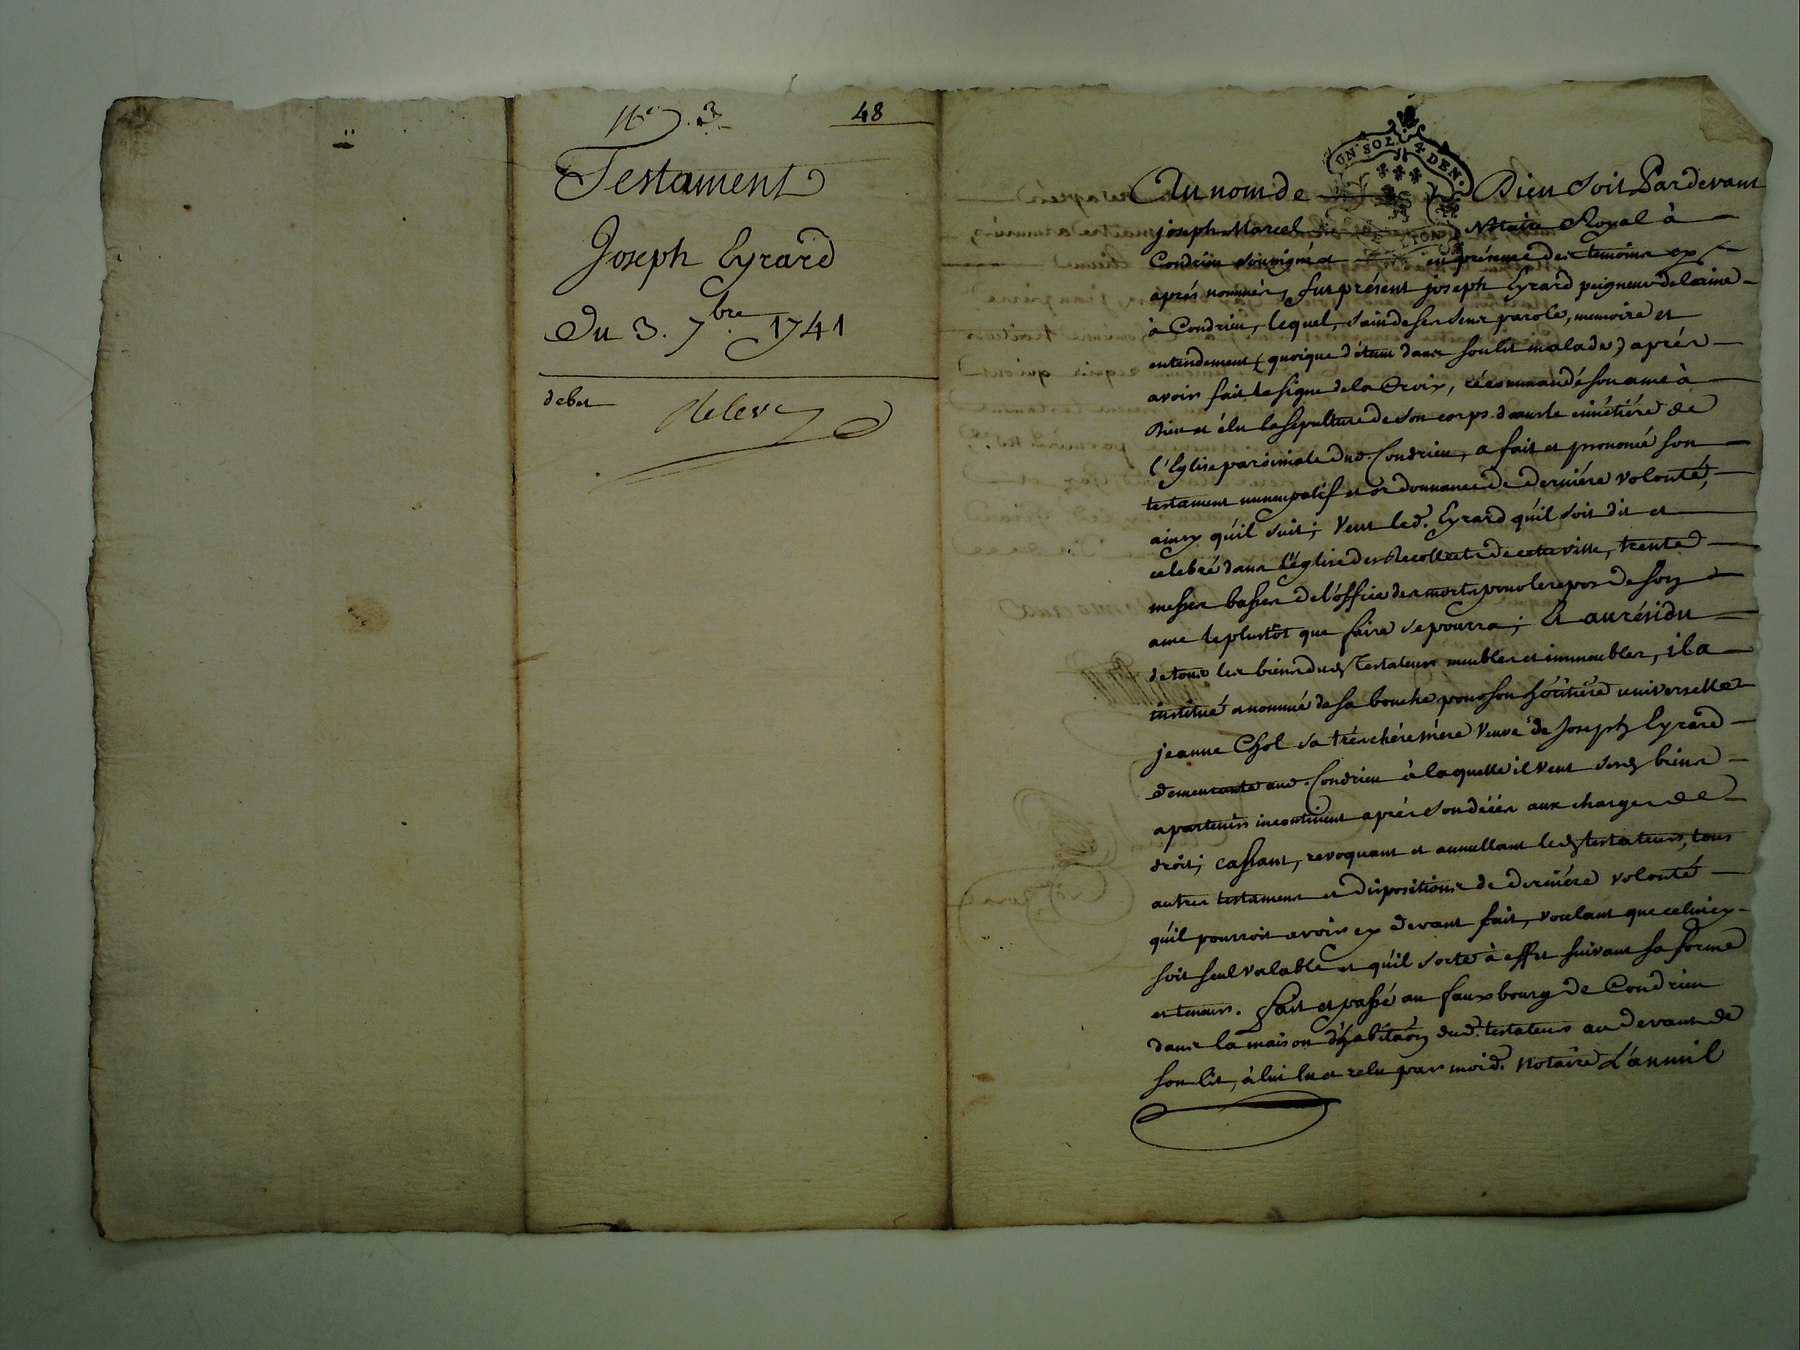 N.e 3
48
Testament
Joseph Eyrard
Du 3. 7bre 1741
debet
UN SOL 4 DEN.
DE LION
Au nom de Dieu soit Pardevant
joseph Marcel Notaire Royal à
Condrieu soussigné et en présence des temoins cy
aprés nommés, fut présent joseph Eyrard peigneur de laine
à Condrieu, lequel, sain de ses sens parole, memoire et
entendement (quoique détenu dans son lit malade) aprés
avoir fait le signe de la Croix, récommandé son ame à
Dieu et élu la sépulture de son corps dans le cimétiére de
l'Eglise paroissiale dud. Condrieu, a fait et prononcé son
testament nuncupatif et ordonnance de derniére volonté,
ainsy qu'il suit; Veut led. Eyrard qu'il soit dit et
celebré dans l'église des Recollects de cette ville, trente
messes basses de l'office des morts pour le repos de son
ame le plustôt que faire se pourra; Et au résidu
de tous les biens dud. Testateur meubles et immeubles, il a
institué et nommé de sa bouche pour son héritiére universelle
jeanne Chol sa trés chére mére Veuve de Joseph Eyrard
demeurante aud. Condrieu à laquelle il veut sesd. biens
apartenir incontinent aprés son décés aux charges de
droit; cassant, revoquant et annullant led. testateur, tous
autres testamens et dispositions de derniére volonté
qu'il pourroit avoir cy devant fait, voulant que celui cy
soit seul valable et qu'il sorte à effet suivant sa forme
et teneur. Fait et passé au fauxbourg de Condrieu
dans la maison d'habitaon dud. testateur au devant de
son lit, à lui lu et relu par moi d. Notaire L'an mil